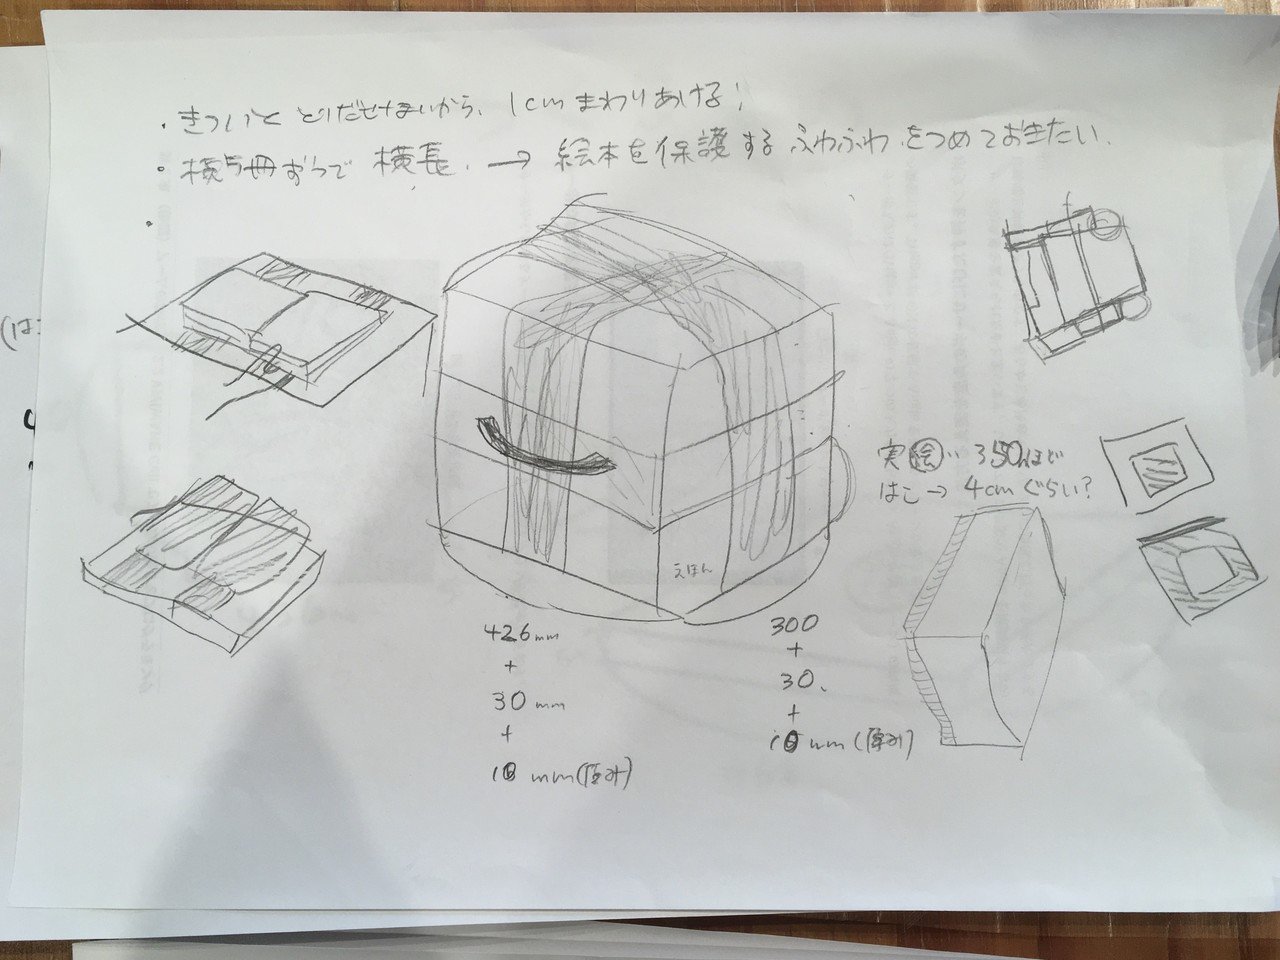 ・きついと とりだせないから、1cmまわりあける!
・横5冊ずつで 横長. → 絵本を保護する ふわふわ をつめておきたい.
・
(は
実絵… 350ほど
はこ→ 4cmぐらい?
えほん
426mm
+
30mm
+
10mm(厚み)
300
+
30
+
10mm(厚み)